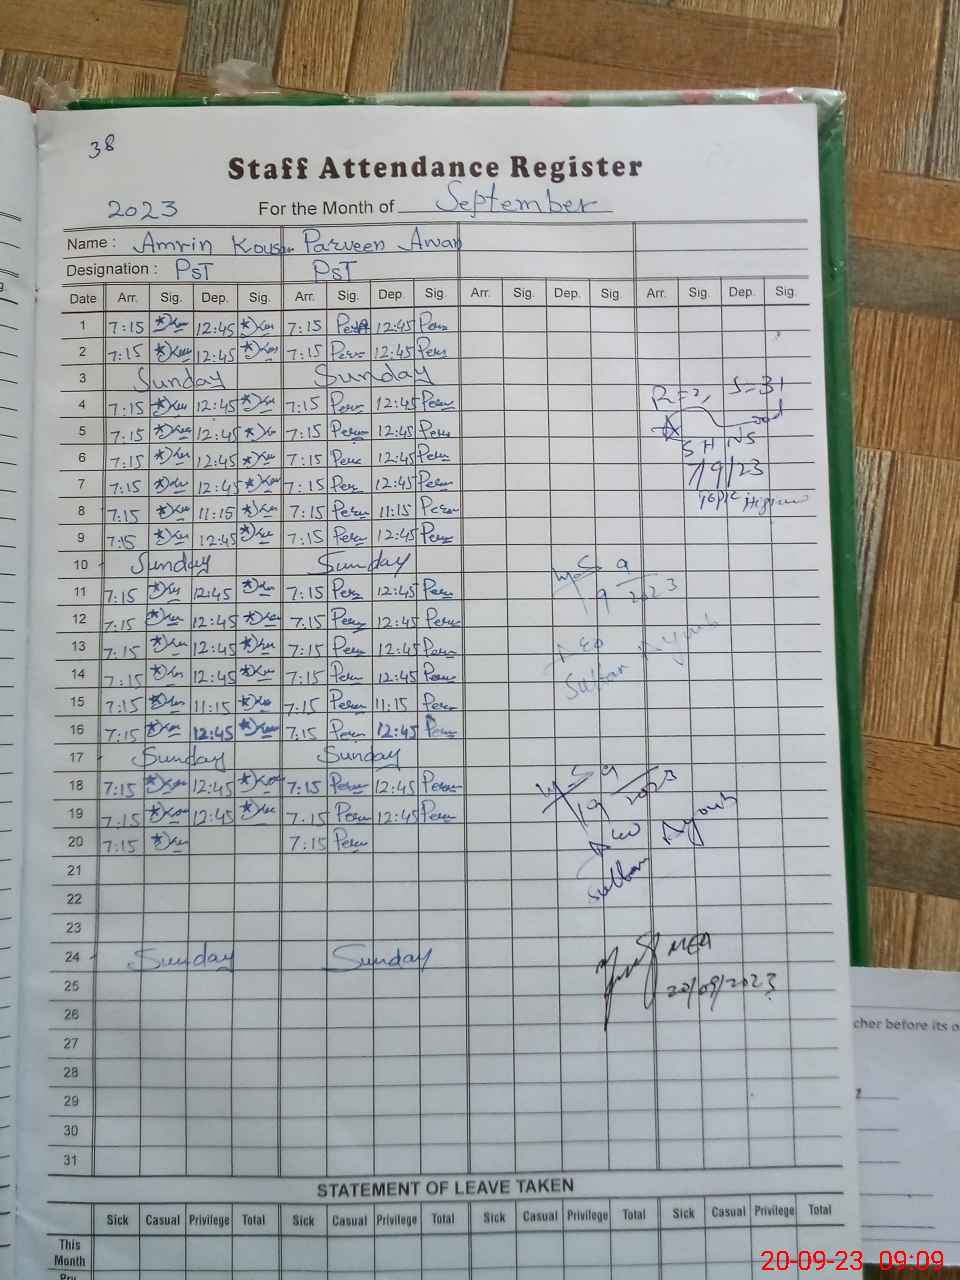 38
Staff Attendance Register
2023 For the Month of September
Name : Amrin Kousar Parveen Awan
Designation : PST PST
Date Arr. Sig. Dep. Sig. Arr. Sig. Dep. Sig. Arr. Sig. Dep. Sig. Arr. Sig. Dep. Sig.
1 7:15 12:45 7:15 12:45
2 7:15 12:45 7:15 12:45
3 Sunday Sunday
4 7:15 12:45 7:15 12:45
5 7:15 12:45 7:15 12:45
6 7:15 12:45 7:15 12:45
7 7:15 12:45 7:15 12:45
8 7:15 11:15 7:15 11:15
9 7:15 12:45 7:15 12:45
10 Sunday Sunday
11 7:15 12:45 7:15 12:45
12 7:15 12:45 7:15 12:45
13 7:15 12:45 7:15 12:45
14 7:15 12:45 7:15 12:45
15 7:15 11:15 7:15 11:15
16 7:15 12:45 7:15 12:45
17 Sunday Sunday
18 7:15 12:45 7:15 12:45
19 7:15 12:45 7:15 12:45
20 7:15 7:15
21
22
23
24 Sunday Sunday
25
26
27
28
29
30
31
S=31
SHNS
7/9/23
Topic
9
2023
AEO
Sultan Ayoub
9
19 2023
AEO Ayoub
Sultan
MEA
20/09/2023
STATEMENT OF LEAVE TAKEN
Sick Casual Privilege Total Sick Casual Privilege Total Sick Casual Privilege Total Sick Casual Privilege Total
This Month
cher before its o
20-09-23 09:09